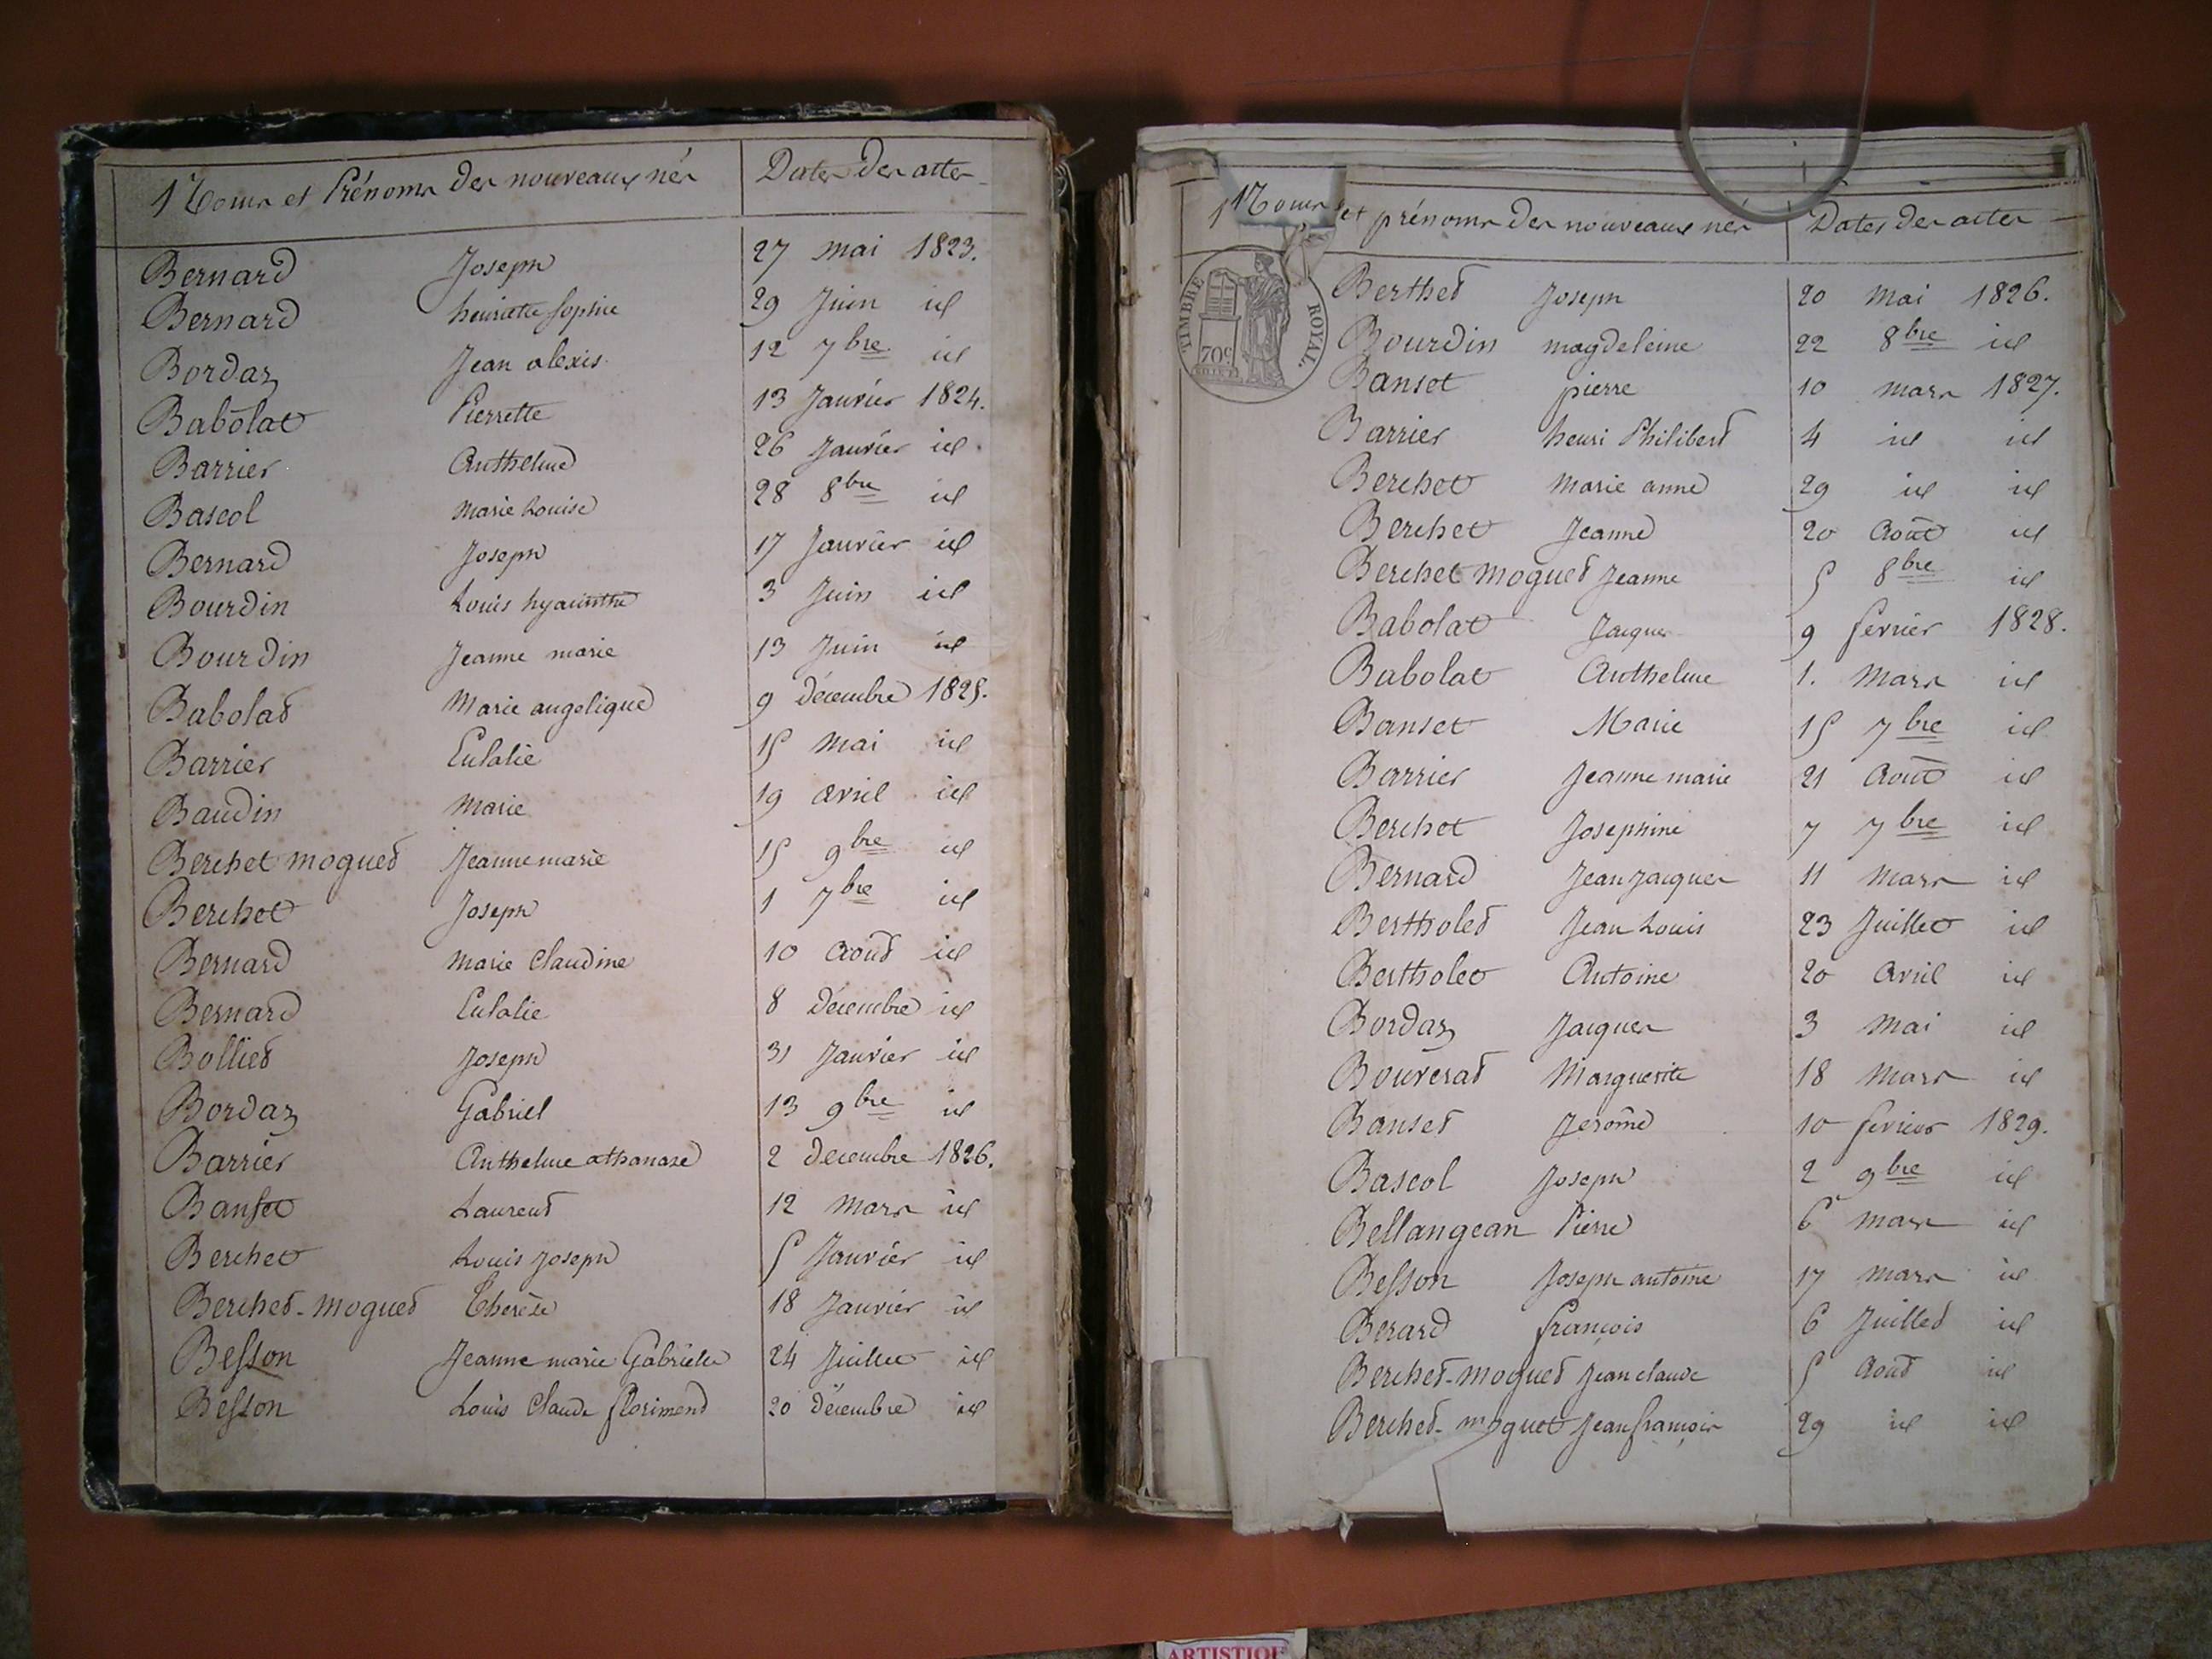 Noms et Prénoms des nouveaux nés Dates des actes
Bernard Joseph 27 mai 1823.
Bernard henriette Sophie 29 Juin id
Bordaz Jean alexis 12 7bre id
Babolat Pierrette 13 Janvier 1824.
Barrier Anthelme 26 Janvier id
Bascol Marie Louise 28 8bre id
Bernard Joseph 17 Janvier id
Bourdin Louis hyacinthe 3 Juin id
Bourdin Jeanne marie 13 Juin id
Babolat Marie angelique 9 décembre 1825.
Barrier Eulalie 15 mai id
Baudin Marie 19 avril id
Berchet moguet Jeanne marie 15 9bre id
Berchet Joseph 1 7bre id
Bernard Marie Claudine 10 Aout id
Bernard Eulalie 8 Décembre id
Bolliet Joseph 31 Janvier id
Bordaz Gabriel 13 9bre id
Barrier Anthelme athanase 2 decembre 1826.
Banset Laurent 12 Mars id
Berchet Louis Joseph 5 Janvier id
Berchet-moguet Therèse 18 Janvier id
Besson Jeanne marie Gabrielle 24 Juillet id
Besson Louis Claude florimond 20 Décembre id
Noms et prénoms des nouveaux nés Dates des actes
TIMBRE ROYAL.
70c
Berthet Joseph 20 Mai 1826.
Bourdin magdeleine 22 8bre id
Banset pierre 10 mars 1827.
Barrier henri Philibert 4 id id
Berchet Marie anne 29 id id
Berchet Jeanne 20 Août id
Berchet moguet Jeanne 5 8bre id
Babolat Jacques 9 fevrier 1828.
Babolat Anthelme 1. Mars id
Banset Marie 15 7bre id
Barrier Jeanne marie 21 Août id
Berchet Josephine 7 7bre id
Bernard Jean Jacques 11 Mars id
Bertholet Jean Louis 23 Juillet id
Bertholet Antoine 20 Avril id
Bordaz Jacques 3 Mai id
Bouverat Marguerite 18 Mars id
Banset Jerôme 10 fevrier 1829.
Bascol Joseph 2 9bre id
Bellangean Pierre 6 mars id
Besson Joseph antoine 17 mars id
Berard françois 6 Juillet id
Berchet-moguet Jean claude 5 Aout id
Berchet-moguet Jean françois 29 id id
ARTISTIQE